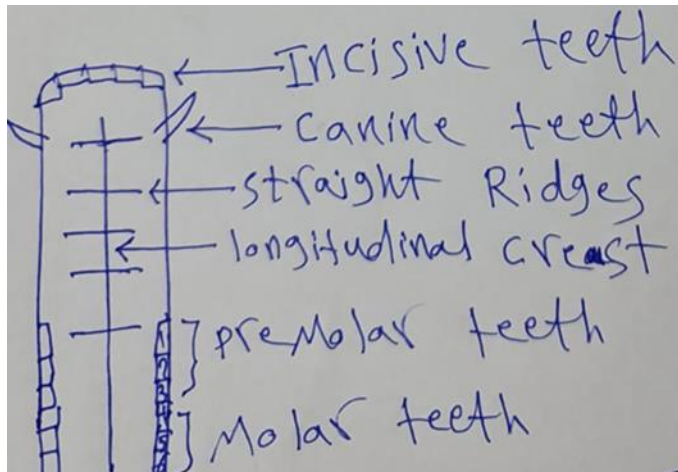 Incisive teeth
canine teeth
straight Ridges
longitudinal creast
preMolar teeth
Molar teeth